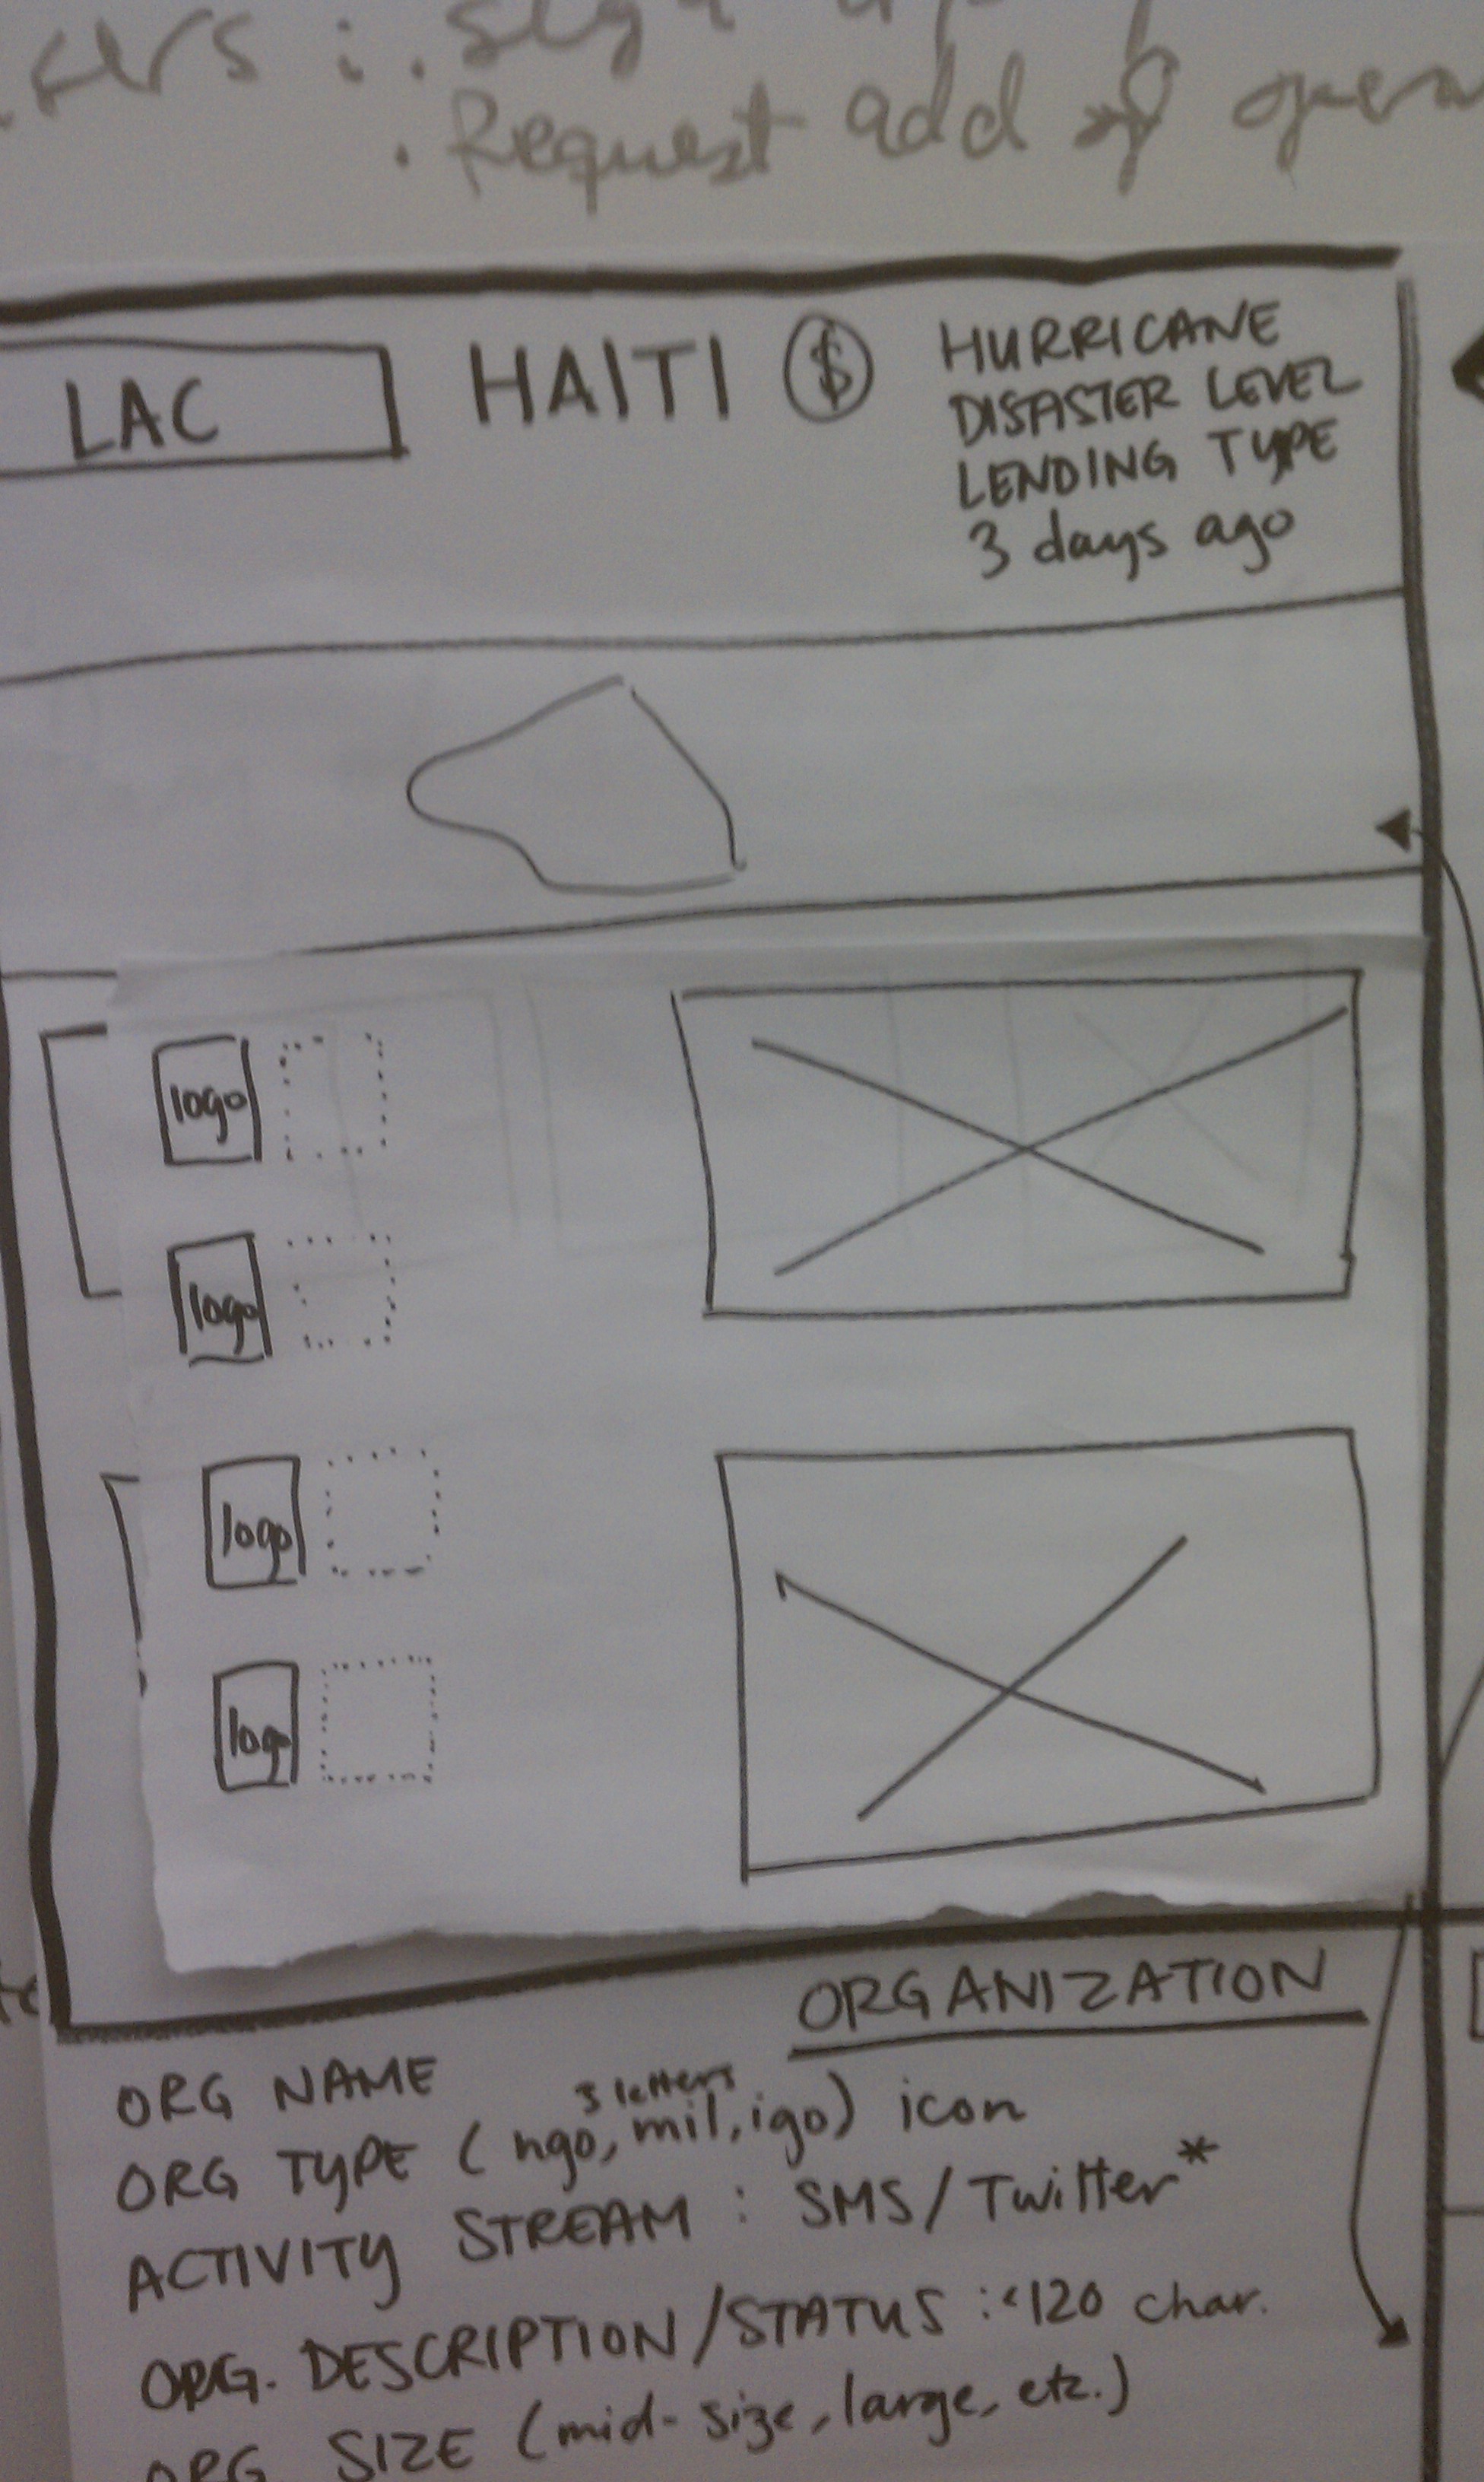 Request add of
LAC
HAITI $
HURRICANE
DISASTER LEVEL
LENDING TYPE
3 days ago
logo
logo
logo
logo
ORGANIZATION
ORG NAME
3 letters
ORG TYPE (ngo, mil, igo) icon
ACTIVITY STREAM : SMS/Twitter*
ORG. DESCRIPTION/STATUS : <120 char.
ORG SIZE (mid-size, large, etc.)